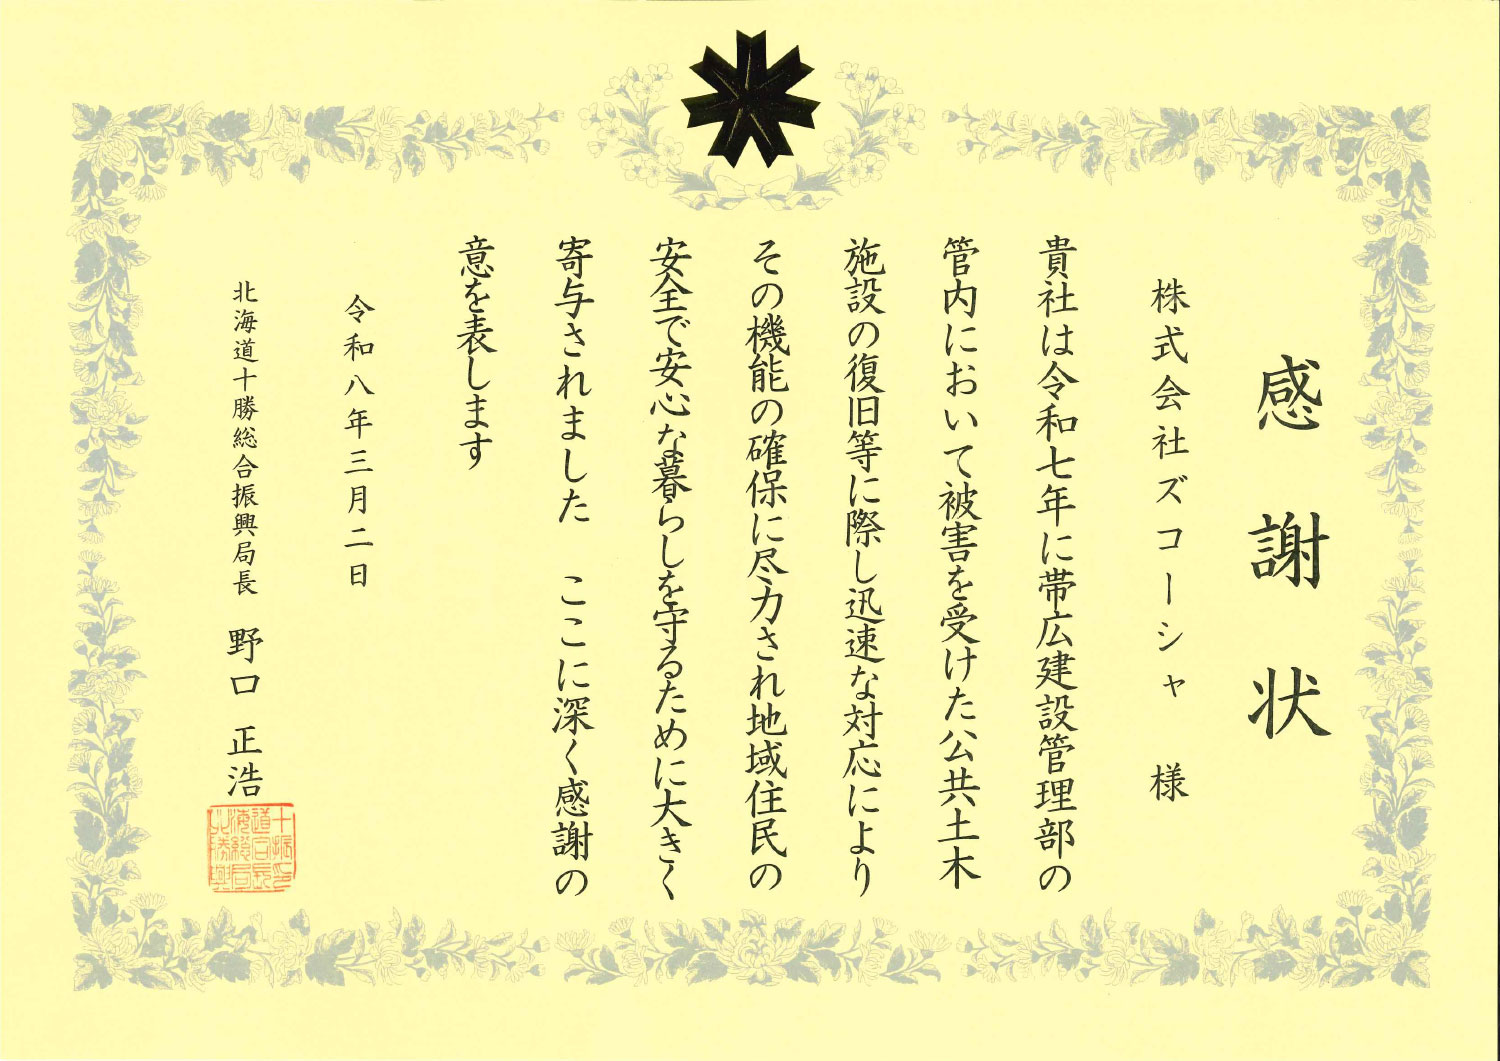 感謝状
株式会社ズコーシャ 様
貴社は令和七年に帯広建設管理部の
管内において被害を受けた公共土木
施設の復旧等に際し迅速な対応により
その機能の確保に尽力され地域住民の
安全で安心な暮らしを守るために大きく
寄与されました ここに深く感謝の
意を表します
令和八年三月二日
北海道十勝総合振興局長 野口正浩